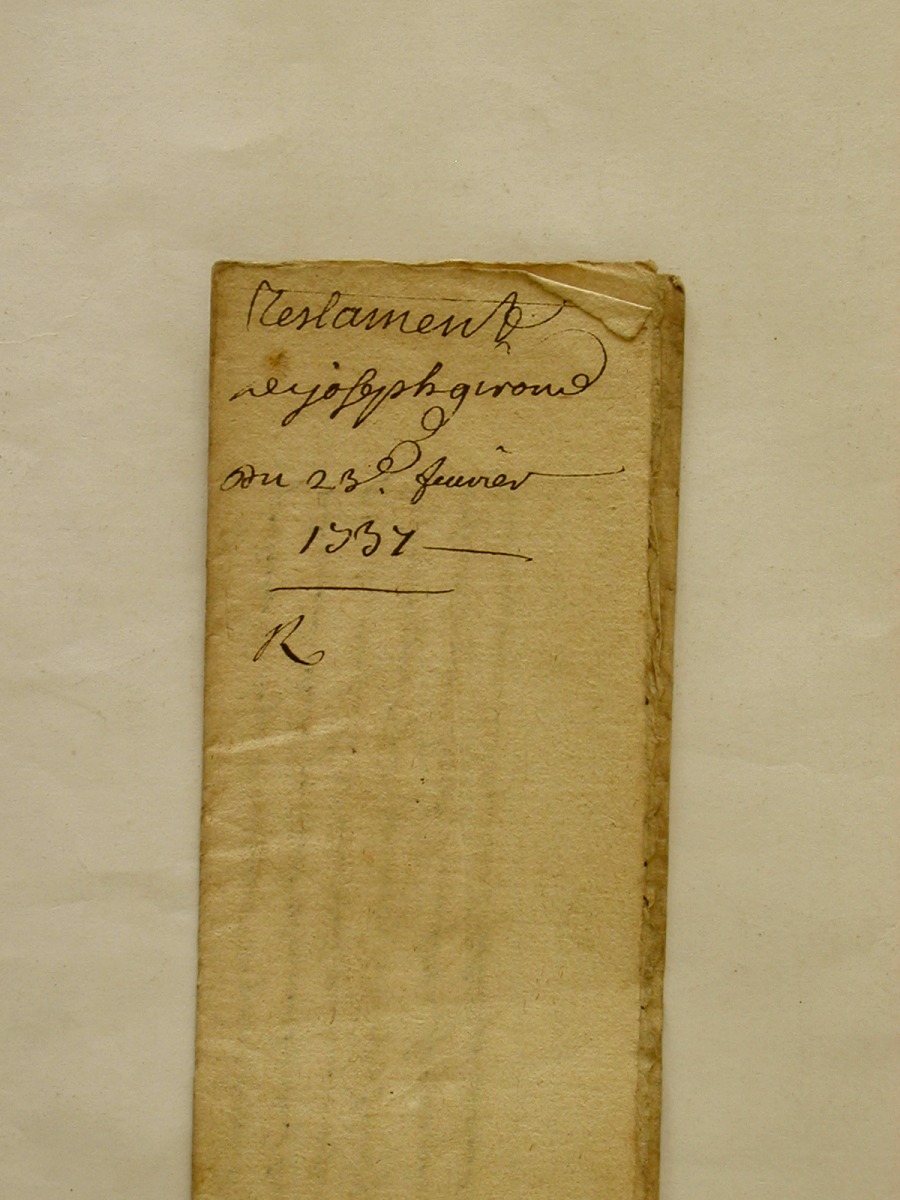 Testament
de joseph giroud
Du 23e. feuvier
1737
R